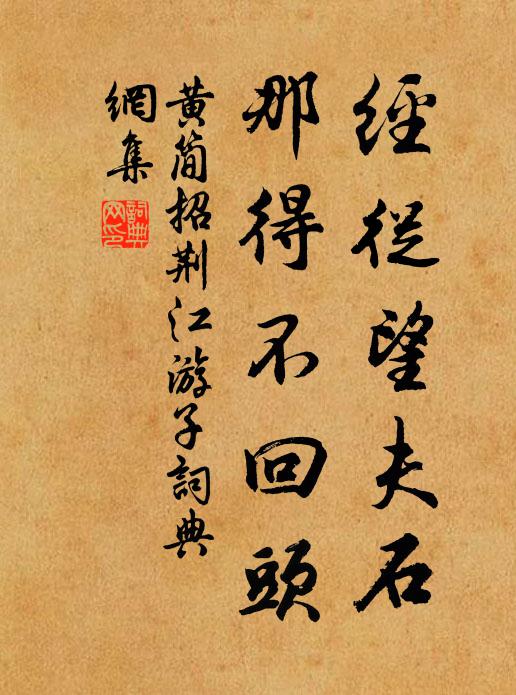 經從望夫石
那得不回頭
黄简招荆江游子詞典
網集
詞典
网印